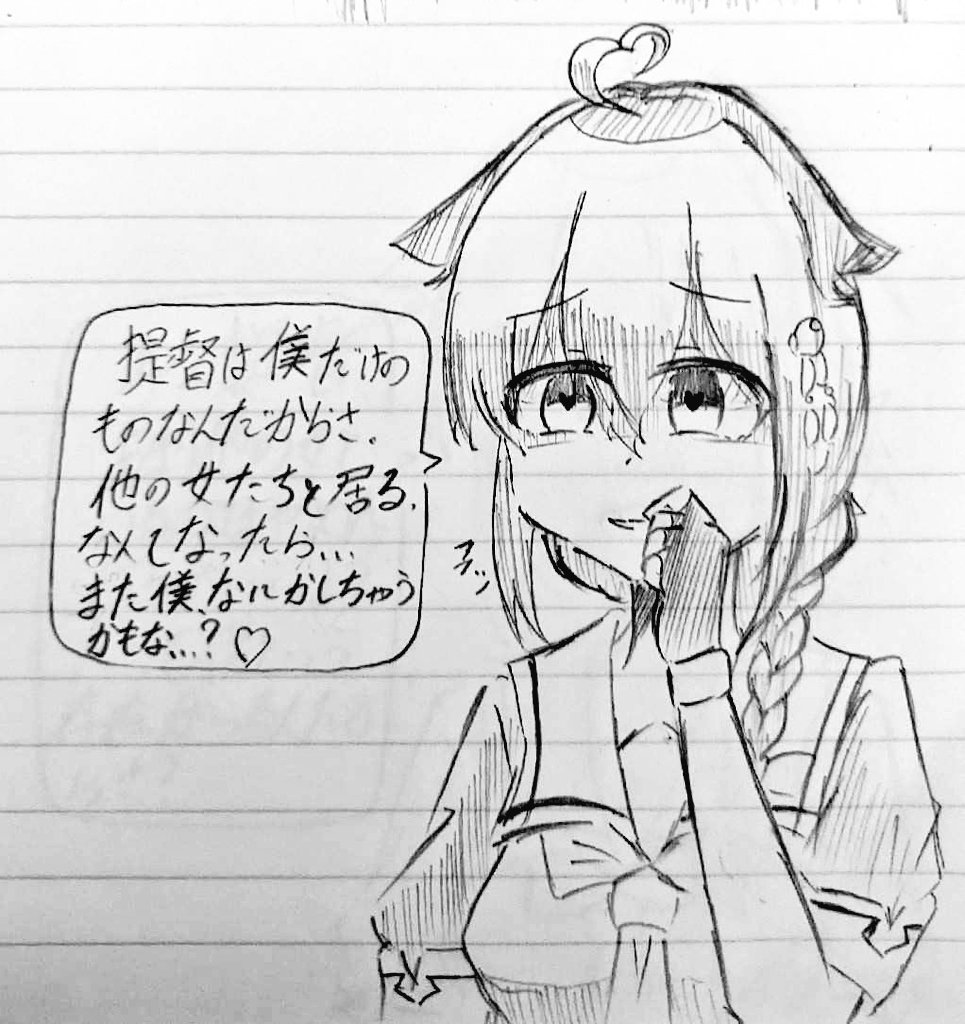 提督は僕だけの
ものなんだからさ、
他の女たちと居る、
なんてなったら...
また僕、なにかしちゃう
かもな...?♡